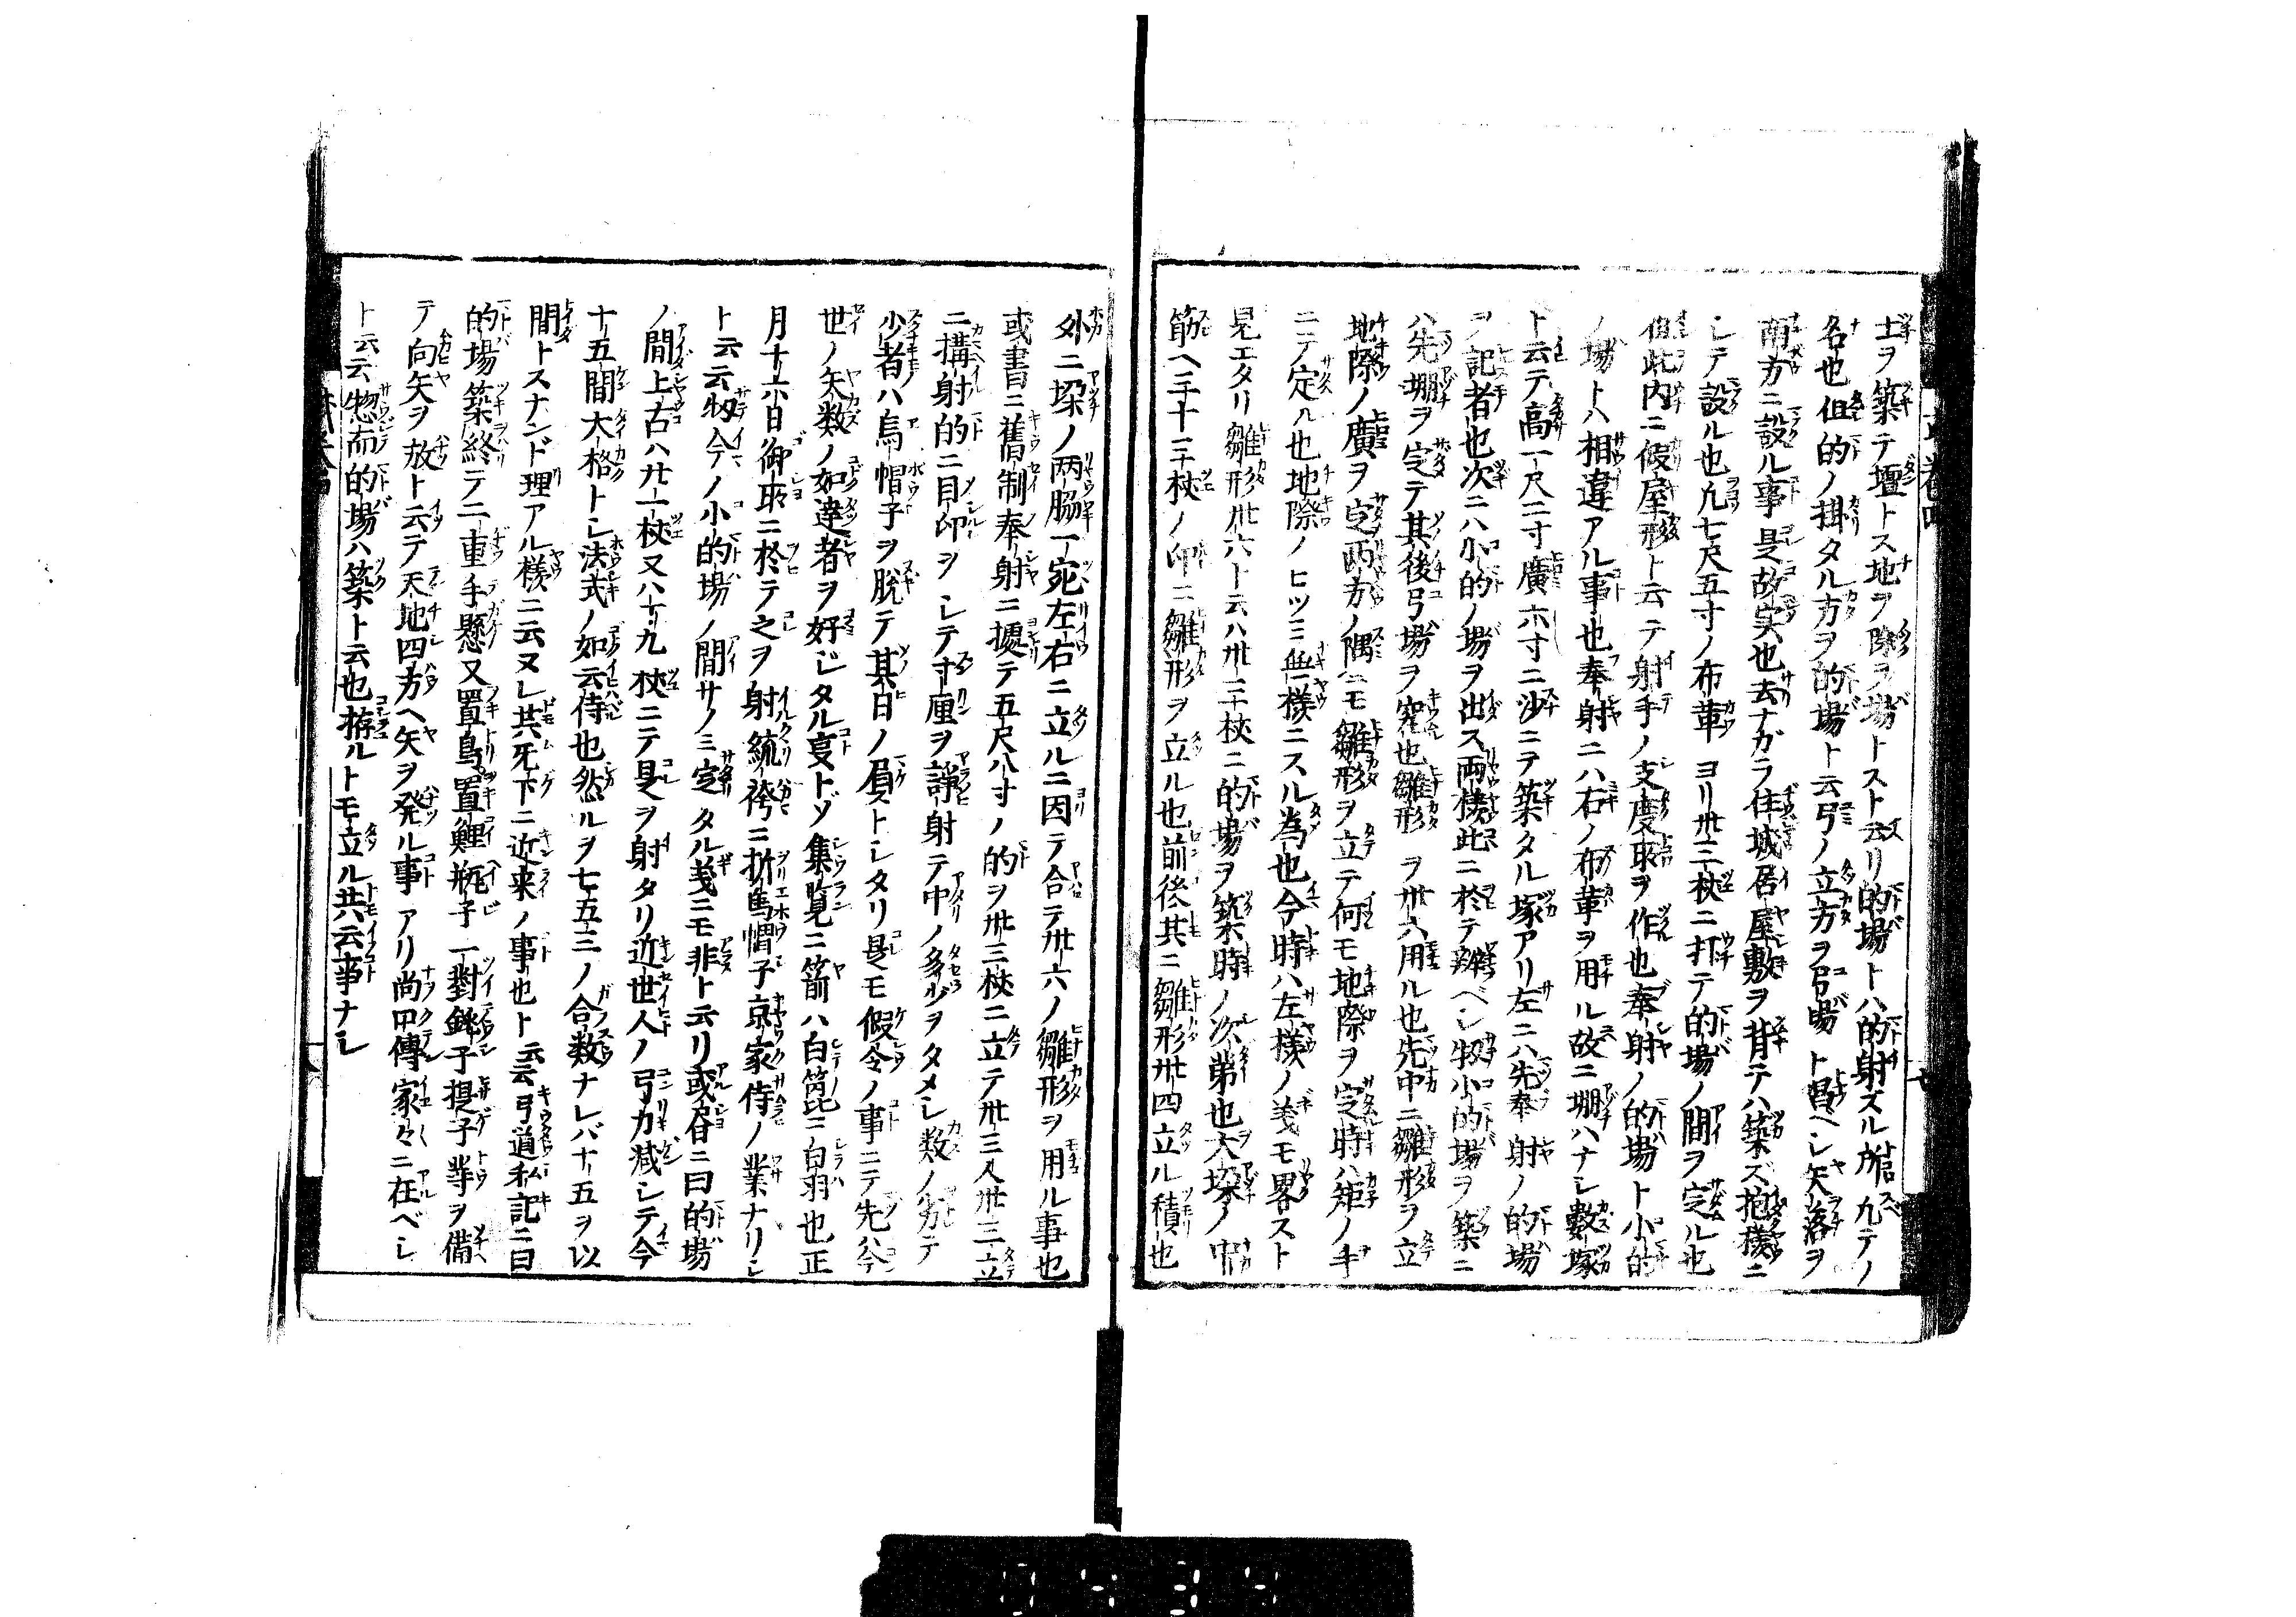 土ヲ築テ壇トス地ヲ除ヲ場トスト云リ的場トハ的射ズル所凢テノ
名也但的ノ掛タル方ヲ的場ト云弓ノ立方ヲ弓場ト曰ベシ矢落ヲ
南方ニ設ル事是故実也去ナガラ住城居屋敷ヲ背テハ築ズ抱様ニ
シテ設ル也凢七尺五寸ノ布革ヨリ卅三杖ニ打テ的場ノ間ヲ定ル也
但此内ニ假屋形ト云テ射手ノ支度取ヲ作也奉射ノ的場ト小的
ノ場トハ相違アル事也奉射ニハ右ノ布革ヲ用ル故ニ堋ハナシ數塚
ト云テ高一尺二寸廣六寸ニ沙ニテ築タル塚アリ左ニハ先奉射ノ的場
ヲ記者也次ニハ小的ノ場ヲ出ス兩様此ニ於テ辨ベシ扨小的場ヲ築ニ
ハ先堋ヲ定テ其後弓場ヲ究也雛形ヲ卅六用ル也先中ニ雛形ヲ立
地際ノ廣ヲ定兩方ノ隅ニモ雛形ヲ立テ何モ地際ヲ定時ハ矩ノ手
ニテ定ル也地際ノヒツミ無様ニスル為也今時ハ左様ノ義モ畧スト
見エタリ雛形卅六ト云ハ卅三杖ニ的場ヲ築時ノ次第也大垜ノ中
筋ヘ三十三杖ノ印ニ雛形ヲ立ル也前後其ニ雛形卅四立ル積也
外ニ垜ノ兩脇一宛左右ニ立ルニ因テ合テ卅六ノ雛形ヲ用ル事也
或書ニ舊制奉射ニ據テ五尺八寸ノ的ヲ卅三杖ニ立テ卅三人卅三立
ニ搆射的ニ目印ヲシテ寸厘ヲ諍射テ中ノ多少ヲタメシ数ノ劣テ
少者ハ烏帽子ヲ脱テ其日ノ屓トシタリ是モ假令ノ事ニテ先公今
世ノ矢数ノ如達者ヲ好ジタル亊トゾ集覧ニ箭ハ白箆ニ白羽也正
月十六日御所ニ於テ之ヲ射統袴ニ折烏帽子京家侍ノ業ナリシ
ト云云扨今ノ小的場ノ間サノミ定タル義ニモ非ト云リ或眘ニ曰的場
ノ間上古ハ廿一杖又八十九杖ニテ是ヲ射タリ近世人ノ弓力減シテ今
十五間大格トシ法式ノ如云侍也然ルヲ七五三ノ合数ナレバ十五ヲ以
間トスナンド理アル様ニ云ヌレ共无下ニ近来ノ事也ト云云弓道私記ニ曰
的場築終テ二重手懸又置鳥置鯉瓶子一對銚子提子等ヲ備
テ向矢ヲ放ト云テ天地四方ヘ矢ヲ発ル事アリ尚口傳家々ニ在ベシ
ト云云惣而的場ハ築ト云也拵ルトモ立ル共云事ナシ